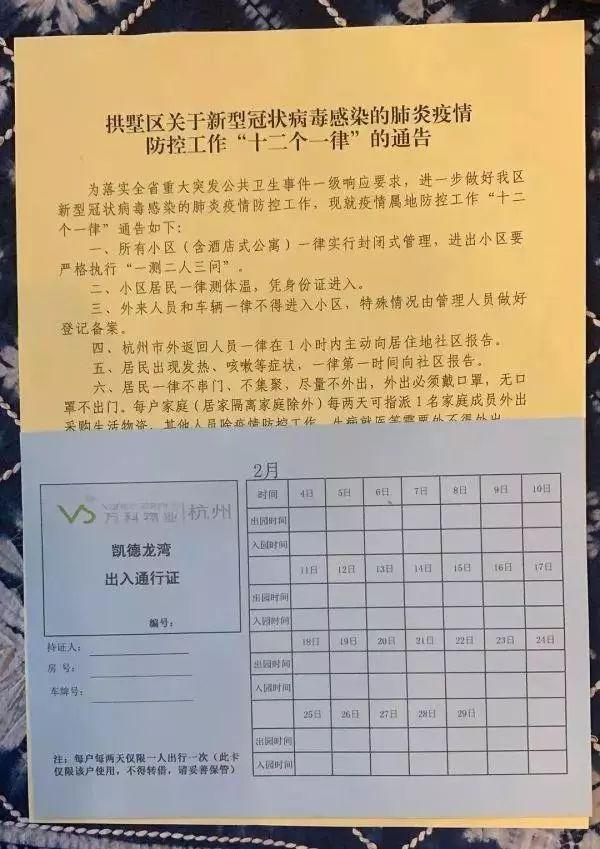 拱墅区关于新型冠状病毒感染的肺炎疫情
防控工作“十二个一律”的通告
为落实全省重大突发公共卫生事件一级响应要求，进一步做好我区
新型冠状病毒感染的肺炎疫情防控工作，现就疫情属地防控工作“十二
个一律”通告如下：
一、所有小区（含酒店式公寓）一律实行封闭式管理，进出小区要
严格执行“一测二人三问”。
二、小区居民一律测体温，凭身份证进入。
三、外来人员和车辆一律不得进入小区，特殊情况由管理人员做好
登记备案。
四、杭州市外返回人员一律在1小时内主动向居住地社区报告。
五、居民出现发热、咳嗽等症状，一律第一时间向社区报告。
六、居民一律不串门、不集聚，尽量不外出，外出必须戴口罩，无口
罩不出门。每户家庭（居家隔离家庭除外）每两天可指派1名家庭成员外出
采购生活物资，其他人员除疫情防控工作、生病就医等需要外不得外出
万科物业 杭州
凯德龙湾
出入通行证
编号：
持证人：
房 号：
车牌号：
注：每户每两天仅限一人出行一次（此卡
仅限该户使用，不得转借，请妥善保管）
2月
时间 4日 5日 6日 7日 8日 9日 10日
出园时间
入园时间
11日 12日 13日 14日 15日 16日 17日
出园时间
入园时间
18日 19日 20日 21日 22日 23日 24日
出园时间
入园时间
25日 26日 27日 28日 29日
出园时间
入园时间